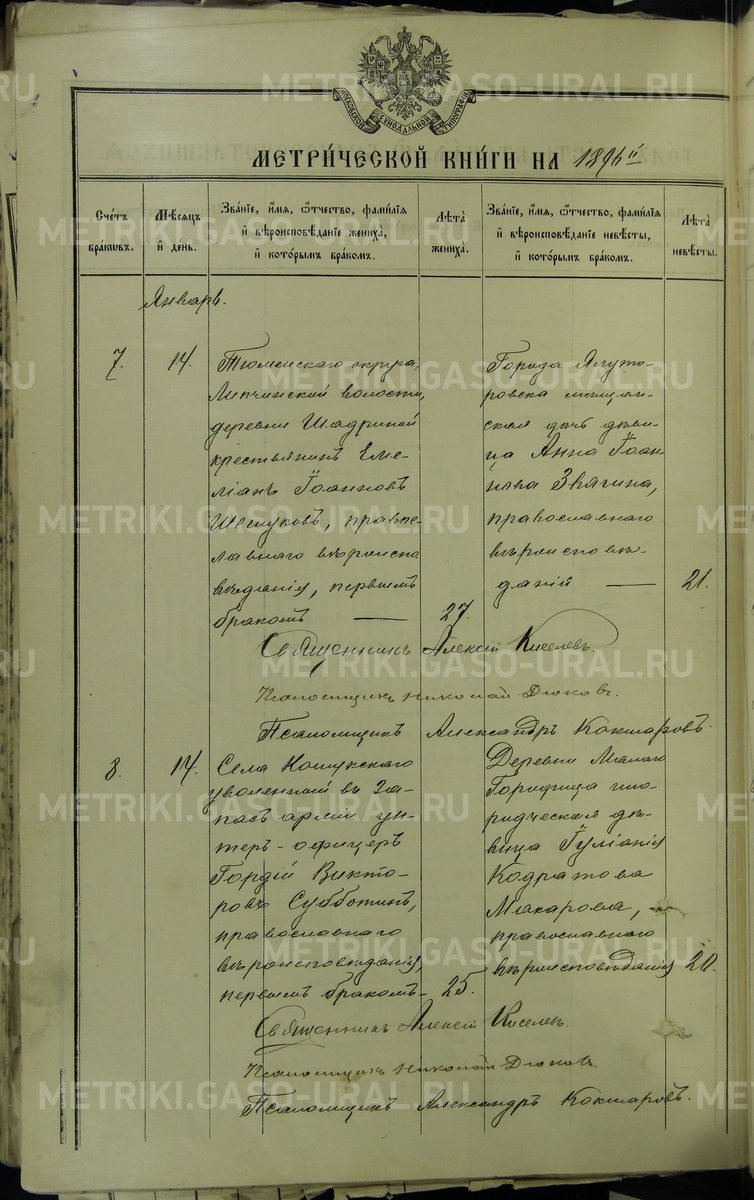 МОСКОВСКОЙ СУНОДАЛЬНОЙ ТИПОГРАФІИ
МЕТРИ́ЧЕСКОЙ КНИ́ГИ НА 1896й
Счетъ бракωвъ.
Мѣсяцъ и день.
Званіе, имя, ѿчество, фамилія и вѣроисповѣданіе жениха, и которымъ бракомъ.
Лѣта жениха.
Званіе, имя, ѿчество, фамилія и вѣроисповѣданіе невѣсты, и которымъ бракомъ.
Лѣта невѣсты.
Январь.
7.
14.
Тюменскаго округа,
Липчинской волости,
деревни Шадриной
крестьянинъ Еме-
ліанъ Іоанновъ
православнаго вѣроиспо
вѣданія, первымъ
бракомъ —
27.
Города Ялуто-
ровска мѣщан-
ская дочь дѣви-
ца Анна Іоан-
нова Звягина,
православнаго
вѣроисповѣ-
данія —
21.
Священникъ Алексій Киселевъ.
Псаломщикъ Николай Дюковъ.
Псаломщикъ Александръ Кокшаровъ.
8.
14.
Села Кошукскаго
уволенный въ За-
пасъ арміи ун-
теръ-офицеръ
Гордій Викто-
ровъ Субботинъ,
православнаго
вѣроисповѣданія,
первымъ бракомъ-
25.
Деревни Малаго
дѣ-
вица Іуліанія
Кодратова
Макарова,
православнаго
вѣроисповѣданія
20.
Священникъ Алексій Киселевъ.
Псаломщикъ Николай Дюковъ.
Псаломщикъ Александръ Кокшаровъ.
METRIKI.GASO-URAL.RU